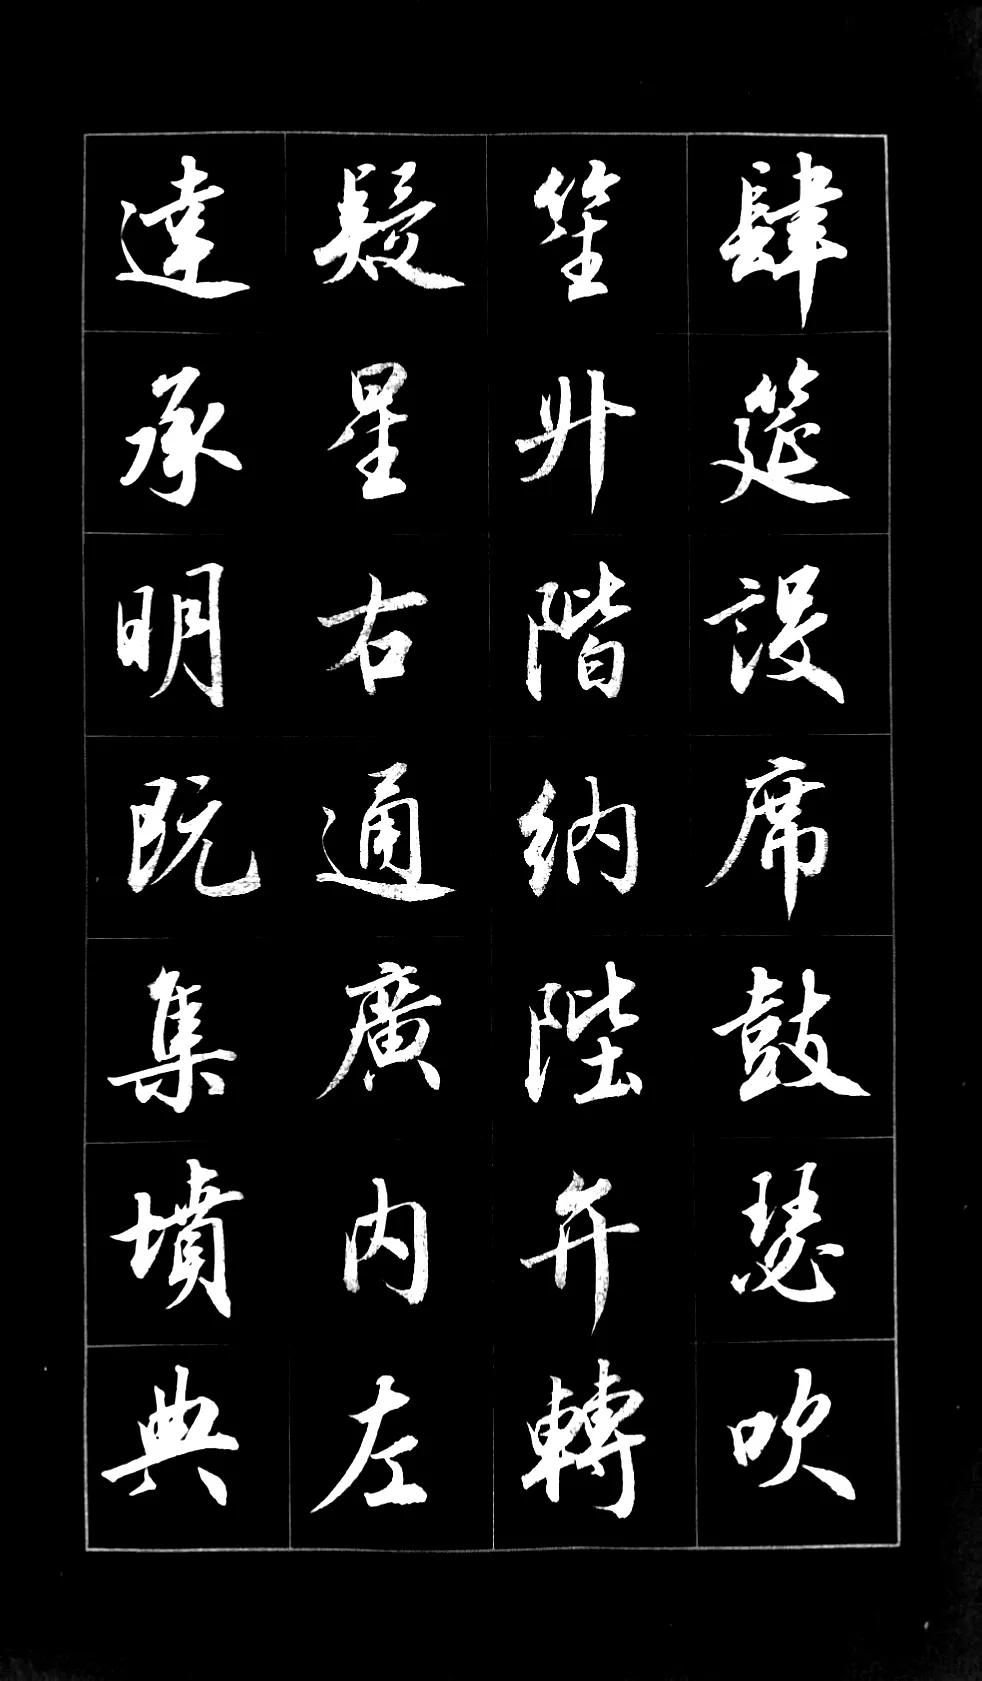 肆筵設席鼓瑟吹
笙升階納陛弁轉
疑星右通廣內左
達承明既集墳典